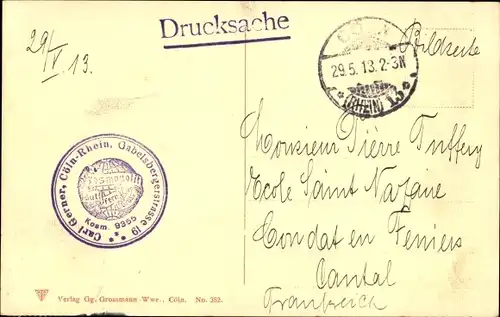 Drucksache
29/V.13.
29.5.13.2-3N
(RHEIN) 13
Bildseite
Carl Gerner, Cöln-Rhein, Gabelsbergerstrasse 19
Kosmopolit
Kosm. 9355
Monsieur Pierre Tuffery
Ecole Saint Nazaire
Condat en Feniers
Cantal
Frankreich
Verlag Gg. Grossmann Wwr., Cöln. No. 352.